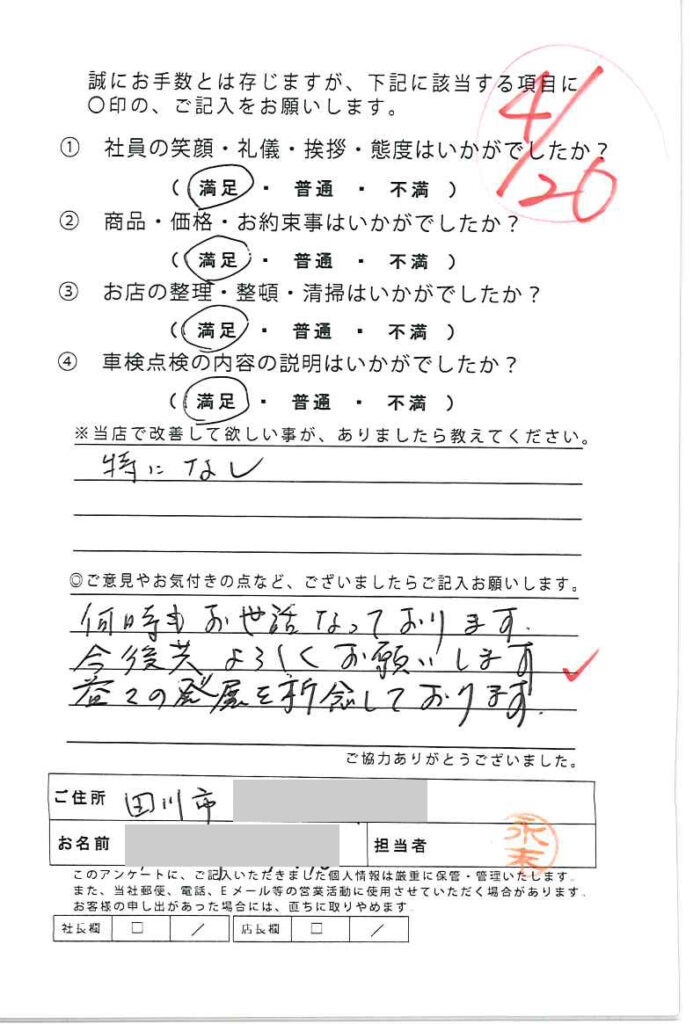 誠にお手数とは存じますが、下記に該当する項目に
〇印の、ご記入をお願いします。
4/20
① 社員の笑顔・礼儀・挨拶・態度はいかがでしたか？
( 満足 ・ 普通 ・ 不満 )
② 商品・価格・お約束事はいかがでしたか？
( 満足 ・ 普通 ・ 不満 )
③ お店の整理・整頓・清掃はいかがでしたか？
( 満足 ・ 普通 ・ 不満 )
④ 車検点検の内容の説明はいかがでしたか？
( 満足 ・ 普通 ・ 不満 )
※当店で改善して欲しい事が、ありましたら教えてください。
特になし
◎ご意見やお気付きの点など、ございましたらご記入お願いします。
何時もお世話なっております.
今後共よろしくお願いします
益々の発展を祈念しております.
ご協力ありがとうございました。
ご住所 田川市
お名前 担当者 永末
このアンケートに、ご記入いただきました個人情報は厳重に保管・管理いたします。
また、当社郵便、電話、Eメール等の営業活動に使用させていただく場合があります。
お客様の申し出があった場合には、直ちに取りやめます。
社長欄 □ ／ 店長欄 □ ／